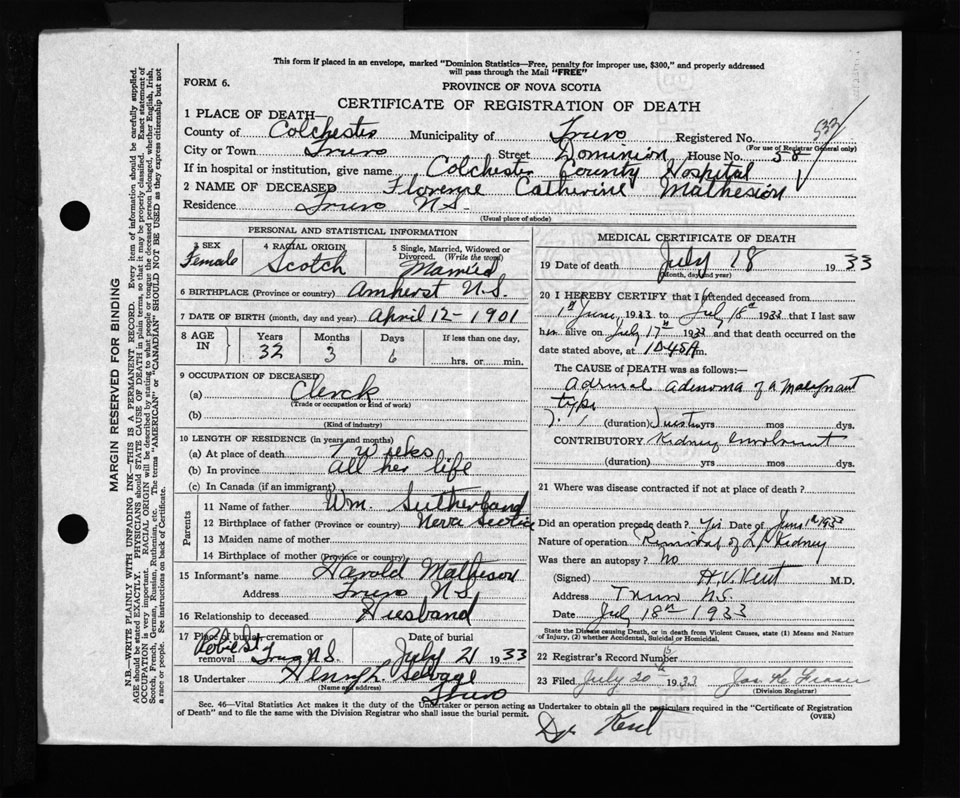 This form if placed in an envelope, marked "Dominion Statistics—Free, penalty for improper use, $300," and properly addressed
will pass through the Mail "FREE"
FORM 6. PROVINCE OF NOVA SCOTIA
CERTIFICATE OF REGISTRATION OF DEATH
1 PLACE OF DEATH—
County of Colchester Municipality of Truro Registered No. 533
(For use of Registrar General only)
City or Town Truro Street Dominion House No. 58
If in hospital or institution, give name Colchester County Hospital
2 NAME OF DECEASED Florence Catherine Matheson
Residence Truro N.S.
(Usual place of abode)
PERSONAL AND STATISTICAL INFORMATION
3 SEX 4 RACIAL ORIGIN 5 Single, Married, Widowed or Divorced. (Write the word)
Female Scotch Married
6 BIRTHPLACE (Province or country) Amherst N.S.
7 DATE OF BIRTH (month, day and year) April 12-1901
8 AGE IN Years Months Days If less than one day,
32 3 6 hrs. or min.
9 OCCUPATION OF DECEASED
(a) Clerck
(Trade or occupation or kind of work)
(b)
(Kind of industry)
10 LENGTH OF RESIDENCE (in years and months)
(a) At place of death 7 weeks
(b) In province all her life
(c) In Canada (if an immigrant)
Parents
11 Name of father Wm. Sutherland
12 Birthplace of father (Province or country) Nova Scotia
13 Maiden name of mother
14 Birthplace of mother (Province or country)
15 Informant's name Harold Matheson
Address Truro N.S.
16 Relationship to deceased Husband
17 Place of burial, cremation or removal Robie St Truro N.S. Date of burial July 21 1933
18 Undertaker Henry L. Selvage
(Name and address) Truro
MEDICAL CERTIFICATE OF DEATH
19 Date of death July 18 1933
(Month, day and year)
20 I HEREBY CERTIFY that I attended deceased from
1st June, 1933 to July 18th 1933 that I last saw
h alive on July 17th 1933 and that death occurred on the
date stated above, at 10.45 A m.
The CAUSE of DEATH was as follows:—
adrenal adenoma of a malignant
type
(duration) yrs mos dys.
CONTRIBUTORY Kidney involvment
(duration) yrs mos dys.
21 Where was disease contracted if not at place of death?
Did an operation precede death? Yes Date of June 1st 1933
Nature of operation Removal of Kidney
Was there an autopsy? No
(Signed) H.V. Kent M.D.
Address Truro N.S.
Date July 18th 1933
State the Disease causing Death, or in death from Violent Causes, state (1) Means and Nature
of Injury, (2) whether Accidental, Suicidal or Homicidal.
22 Registrar's Record Number
23 Filed July 20 1933 Jas. K. Fraser
(Division Registrar)
Sec. 46—Vital Statistics Act makes it the duty of the Undertaker or person acting as Undertaker to obtain all the particulars required in the "Certificate of Registration
of Death" and to file the same with the Division Registrar who shall issue the burial permit. (OVER)
Dr Kent
MARGIN RESERVED FOR BINDING
N.B.—WRITE PLAINLY WITH UNFADING INK—THIS IS A PERMANENT RECORD. Every item of information should be carefully supplied.
AGE should be stated EXACTLY. PHYSICIANS should STATE CAUSE OF DEATH in plain terms, so that it may be properly classified. Exact statement of
OCCUPATION is very important. RACIAL ORIGIN will be described by stating to what people or tongue the deceased person belonged, whether English, Irish,
Scotch, French, German, Russian, Ruthenian, etc. The terms "AMERICAN" or "CANADIAN" SHOULD NOT BE USED as they express citizenship but not
a race or people. See instructions on back of Certificate.